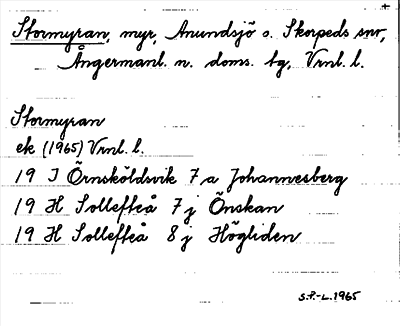 Stormyran, myr, Anundsjö o. Skorpeds snr,
Ångermanl. n. doms. tg, Vrnl. l.
Stormyran
ek (1965) Vrnl. l.
19 I Örnsköldsvik 7 a Johannesberg
19 H Sollefteå 7 j Önskan
19 H Sollefteå 8 j Högliden
S.P.-L. 1965